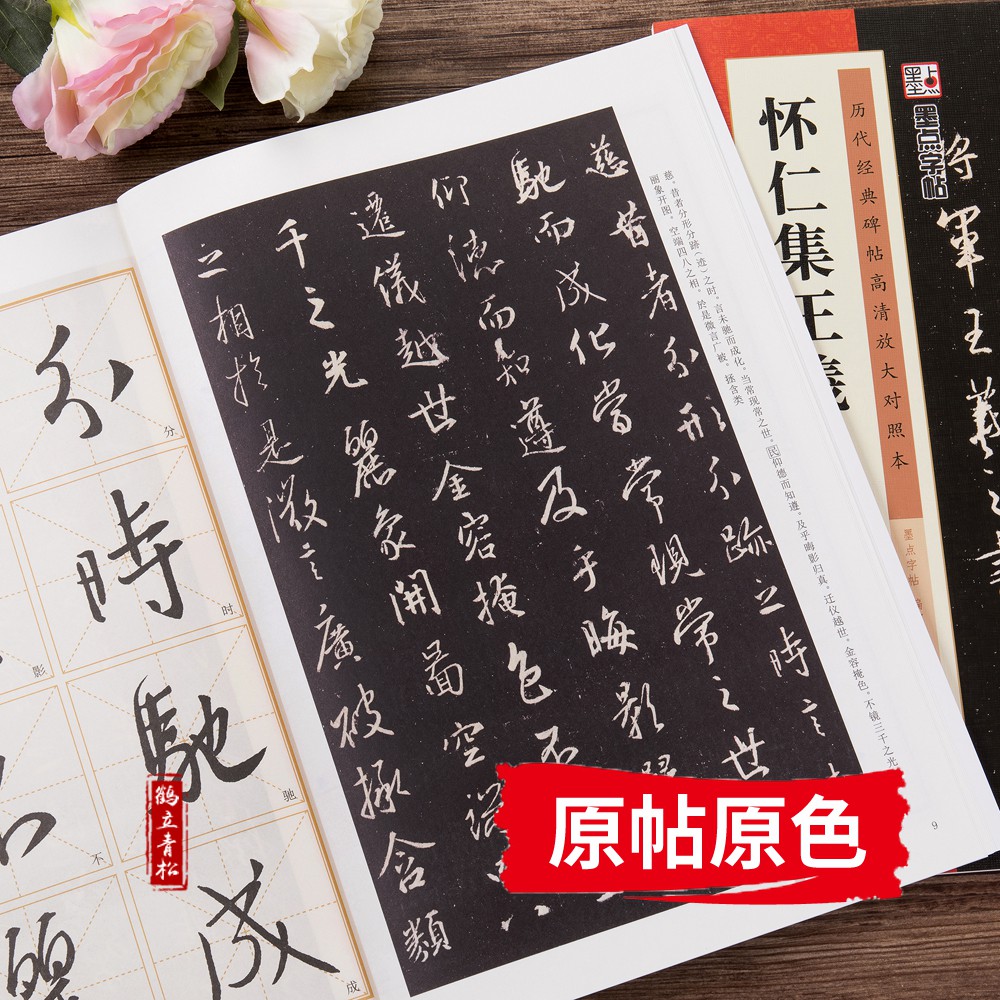 历代经典碑帖高清放大对照本
怀仁集王羲
墨点字帖
墨点
墨点字帖
将軍王羲之書
慈昔者分形分跡之時言
馳而成化當常現常之世
仰德而知遵及乎晦影歸
遷儀越世金容掩色不
千之光麗象開圖空端
之相於是微言廣被拯含類
慈。昔者分形分跡（迹）之时，言未驰而成化。当常现常之世，民仰德而知遵。及乎晦影归真，迁仪越世。金容掩色，不镜三千之光
丽象开图，空端四八之相。於是微言广被，拯含类
9
分
分
時
时
馳
驰
成
成
影
不
麗
鹤立青松
原帖原色